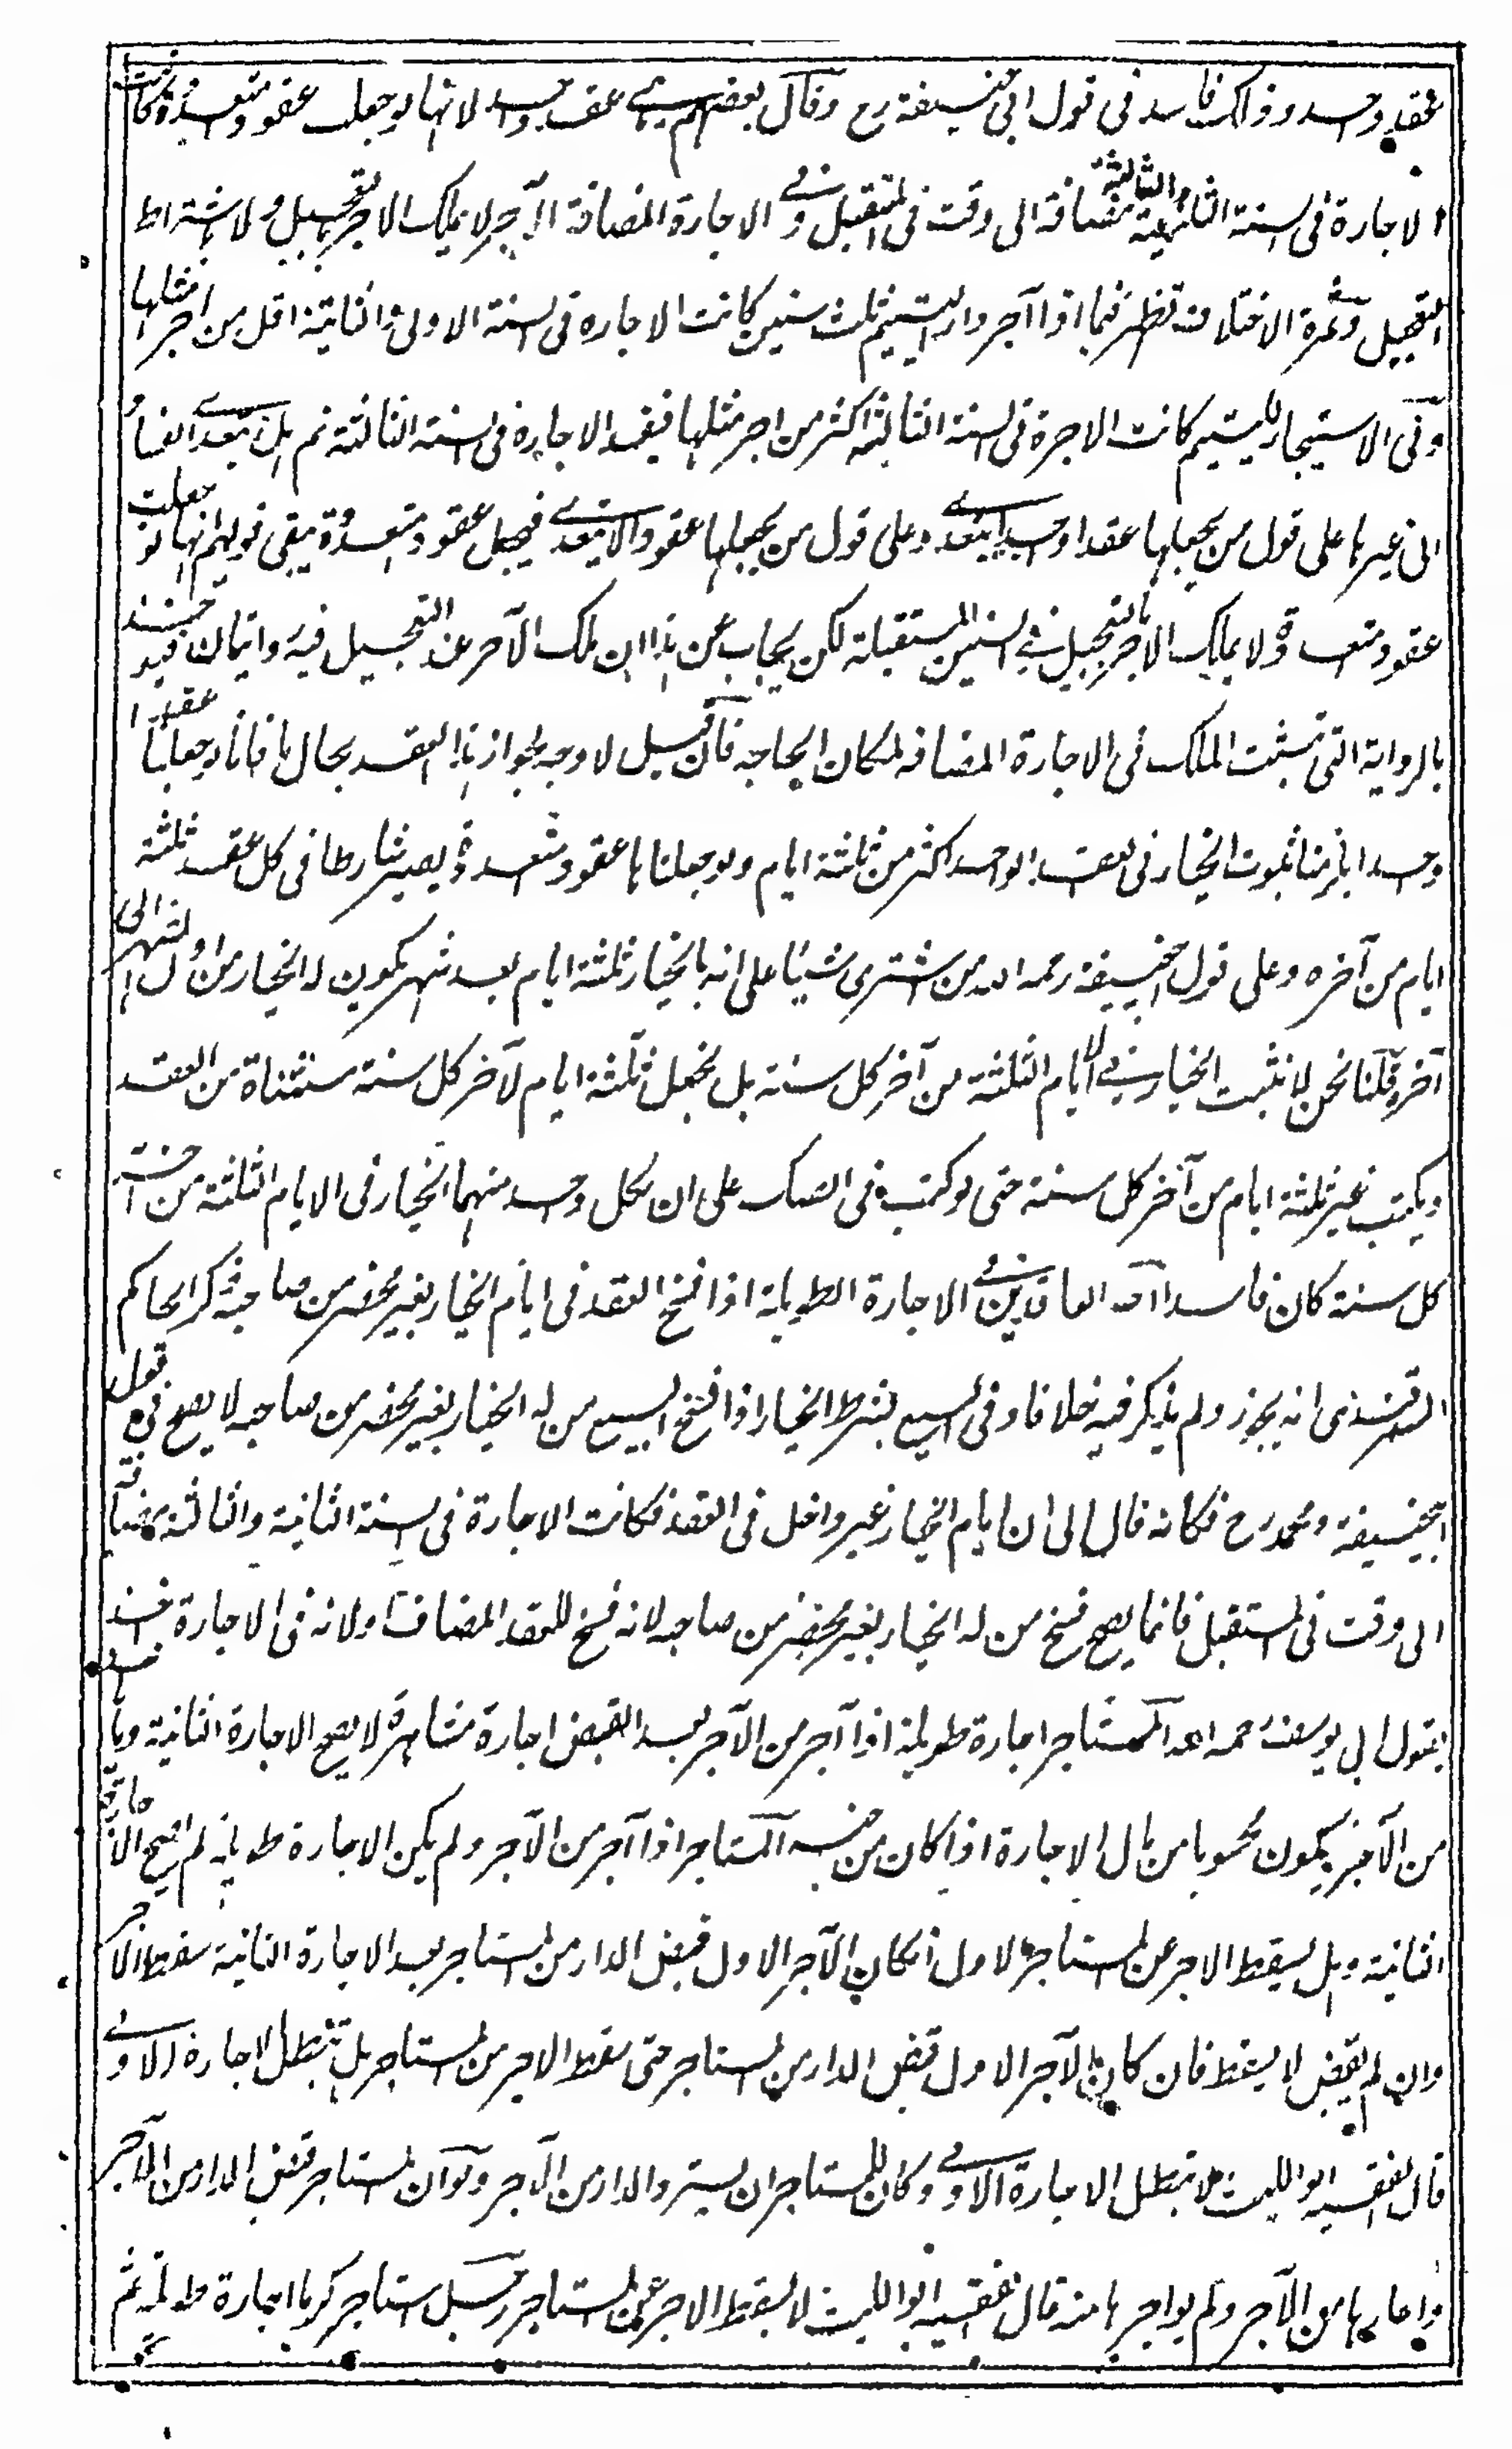 عقد واحد وذلك فاسد في قول ابي حنيفة رح وقال بعضهم هي عقد واحد لانها لو جعلت عقودا متعددة كانت
الاجارة في السنة الثانية والثالثة مضافة الى وقت في المستقبل وفي الاجارة المضافة الآجر لا يملك الاجر بالتعجيل ولا باشتراط
التعجيل وثمرة الاختلاف تظهر فيما اذا آجر دار اليتيم ثلث سنين كانت الاجارة في السنة الاولى والثانية اقل من اجر مثلها
وفي الاستيجار لليتيم كانت الاجرة في السنة الثالثة اكثر من اجر مثلها فيفسد الاجارة في السنة الثالثة ثم هل يتعدى الفساد
الى غيرها على قول من يجعلها عقدا واحدا يتعدى وعلى قول من يجعلها عقودا لا يتعدى فيجعل عقود متعددة يبقى قولهم انها لو جعلت
عقود متعددة لا يملك الاجر بالتعجيل في السنين المستقبلة لكن يجاب عن هذا ان ملك الآجر عند التعجيل فيه روايتان فيؤخذ
بالرواية التي تثبت الملك في الاجارة المضافة لمكان الحاجة فان قيل لا وجه لجواز هذا العقد بحال ما فانا لو جعلناها عقدا
واحدا يلزمنا ثبوت الخيار في العقد الواحد اكثر من ثلثة ايام ولو جعلناها عقود متعددة يصير شارطا في كل عقد ثلثة
ايام من آخره وعلى قول ابي حنيفة رحمه الله من اشترى شيئا على انه بالخيار ثلثة ايام بعد شهر يكون له الخيار من اول الشهر الى
آخره قلنا نحن لا نثبت الخيار في الايام الثلثة من آخر كل سنة بل نجعل ثلثة ايام لآخر كل سنة مستثناة من العقد
ويكتب غير ثلثة ايام من آخر كل سنة حتى لو كتب في الصك على ان لكل واحد منهما الخيار في الايام الثلثة من آخر
كل سنة كان فاسدا احد العاقدين في الاجارة الطويلة اذا فسخ العقد في ايام الخيار بغير محضر من صاحبه ذكر الحاكم
السمرقندي انه يجوز ولم يذكر فيه خلافا وفي البيع بشرط الخيار اذا فسخ البيع من له الخيار بغير محضر من صاحبه لا يصح في قول
ابي حنيفة ومحمد رح فكانه قال الى ان ايام الخيار غير داخل في العقد فكانت الاجارة في السنة الثانية والثالثة مضافة
الى وقت في المستقبل فانما يصح فسخ من له الخيار بغير محضر من صاحبه لانه فسخ للعقد المضاف ولانه في الاجارة اخذ
بقول ابي يوسف رحمه الله المستاجر اجارة طويلة اذا آجر من الآجر بعد القبض اجارة مشاهرة لا يصح الاجارة الثانية وما
من الآجر يكون محسوبا من مال الاجارة اذا كان من جنسه المستاجر اذا آجر من الآجر ولم يكن الاجارة طويلة لم تصح الاجارة
الثانية وهل يسقط الاجر عن المستاجر الاول ان كان الآجر الاول قبض الدار من المستاجر بعد الاجارة الثانية سقط الاجر
وان لم يقبض لا يسقط فان كان الآجر الاول قبض الدار من المستاجر حتى سقط الاجر من المستاجر هل تبطل الاجارة الاولى
قال الفقيه ابو الليث لا تبطل الاجارة الاولى وكان للمستاجر ان يسترد الدار من الآجر ولو ان المستاجر قبض الدار من الآجر
واعارها من الآجر ولم يواجرها منه قال الفقيه ابو الليث لا يسقط الاجر عن المستاجر رجل استاجر كرما اجارة طويلة ثم